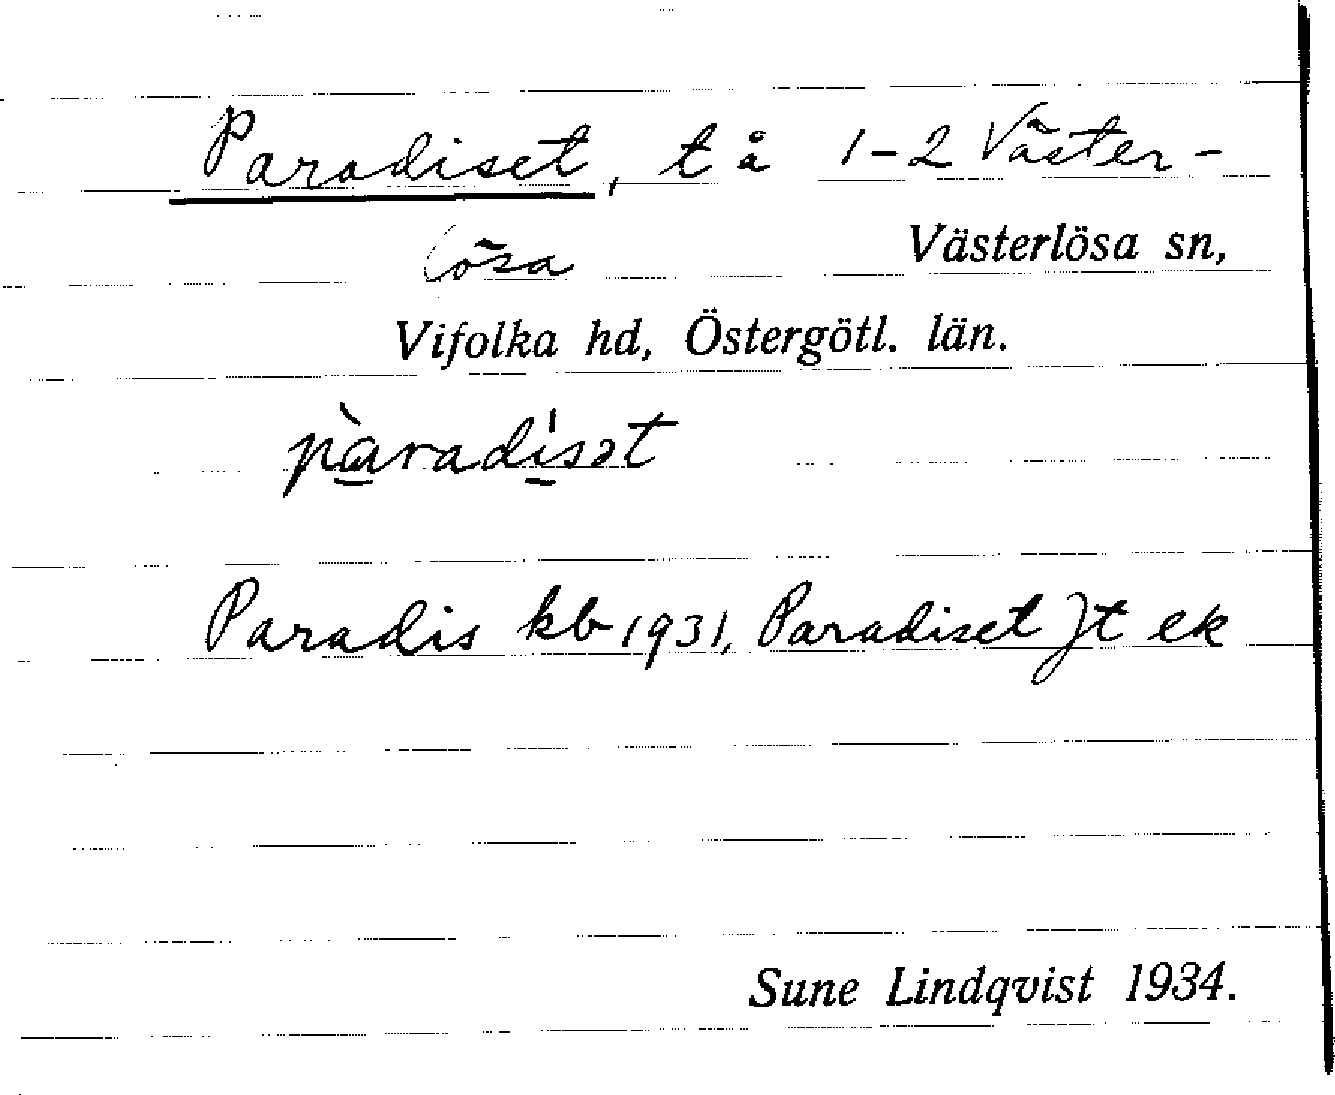 Paradiset, t å 1-2 Väster-
lösa Västerlösa sn,
Vifolka hd, Östergötl. län.
pàradi̍sət
Paradis kb 1931, Paradiset Jt ek
Sune Lindqvist 1934.